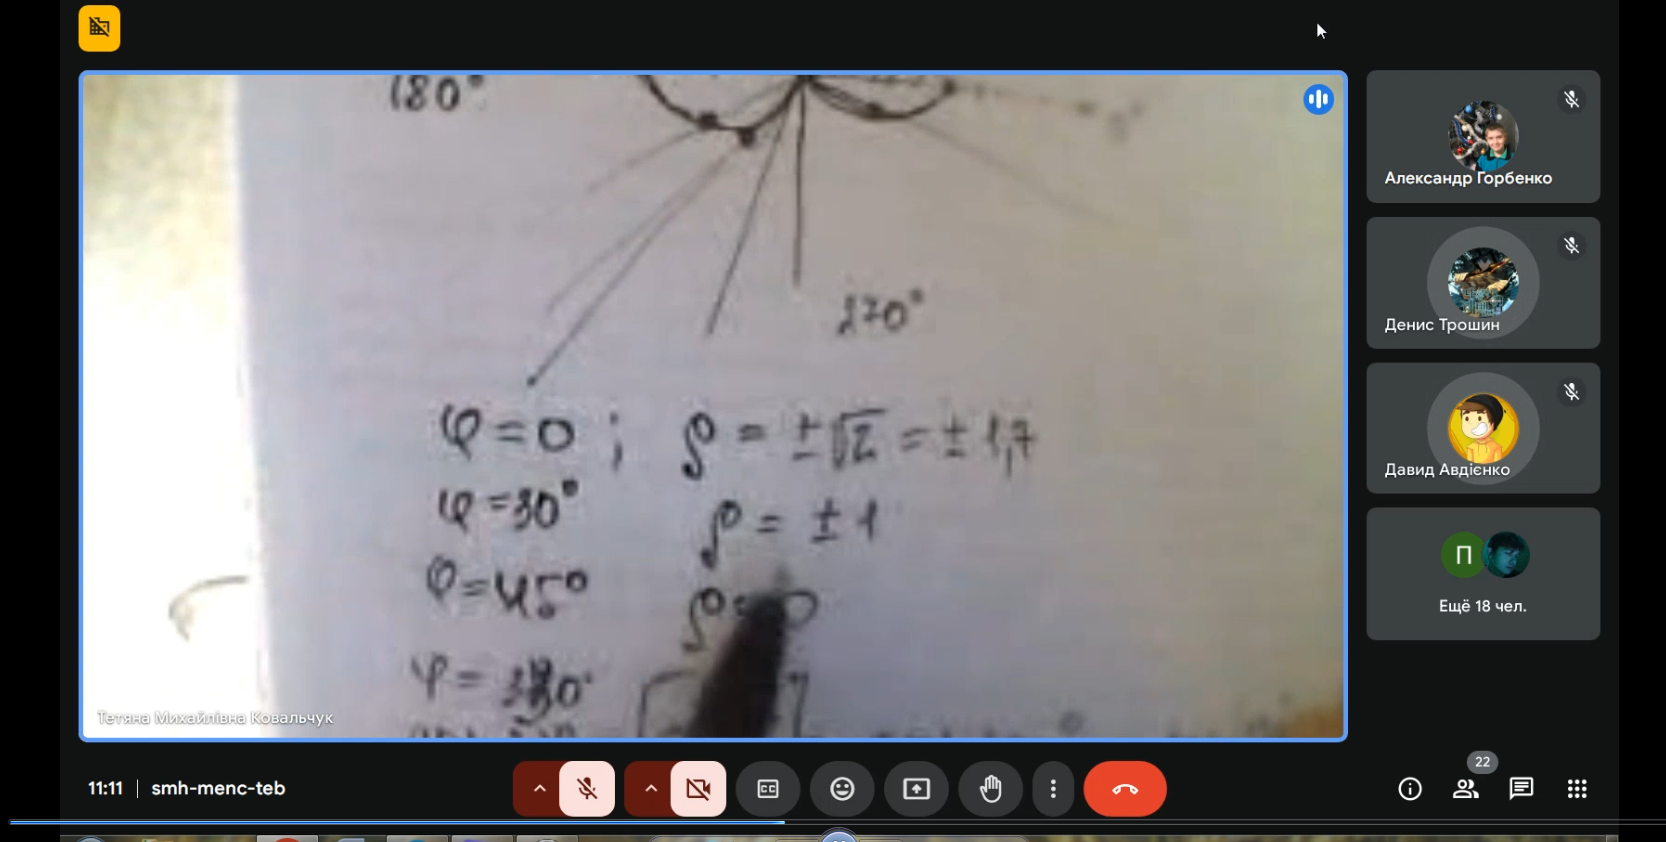 180°
270°
φ=0 ; ρ = ±√2 = ±1,7
φ=30° ρ = ±1
φ=45° ρ=0
Тетяна Михайлівна Ковальчук
Александр Горбенко
Денис Трошин
Давид Авдієнко
П
Ещё 18 чел.
11:11 | smh-menc-teb
CC
22